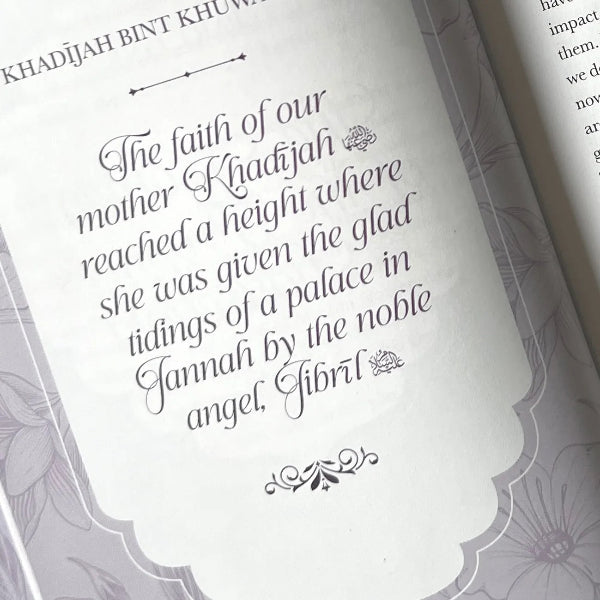 KHADĪJAH BINT KHUWA
The faith of our
mother Khadījah رضي الله عنها
reached a height where
she was given the glad
tidings of a palace in
Jannah by the noble
angel, Jibrīl عليه السلام
hav
impact
them.
we d
now
ar
g